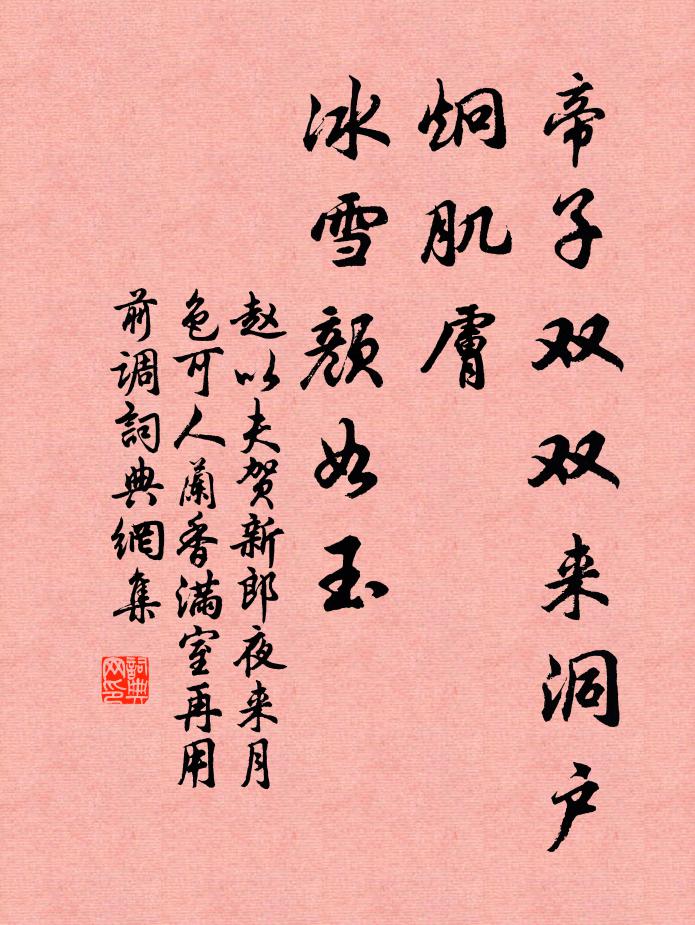 帝子双双来洞户
炯肌膚
冰雪颜如玉
赵以夫贺新郎夜来月
色可人蘭香满室再用
前调詞典網集
詞典
网印